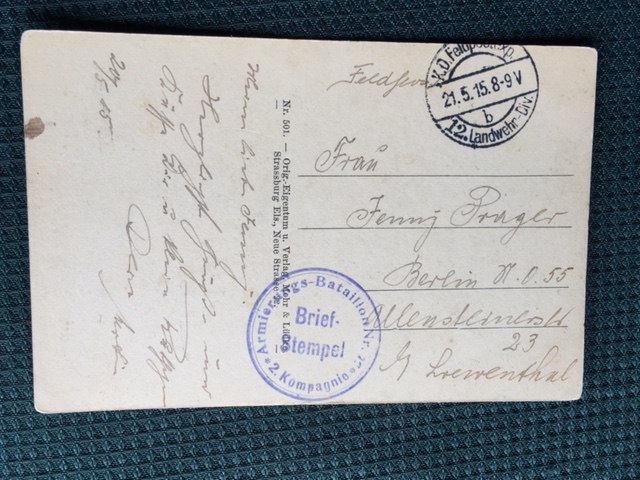 Feldpost
K.D. Feldpostexp.
21.5.15.8-9V
b
12. Landwehr-Div.
Frau
Jenny Prager
Berlin N.O. 55
Allensteinerstr
23
b/ Loewenthal
Nr. 501. — Orig.-Eigentum u. Verlag Mohr & 
Strassburg Els., Neue Strasse
Armierungs-Bataillon Nr.
Brief-
Stempel
2. Kompagnie
20/5 15.
Meine liebe Jenny!
Herzlichste Grüsse und
Küsse Dir u
Dein